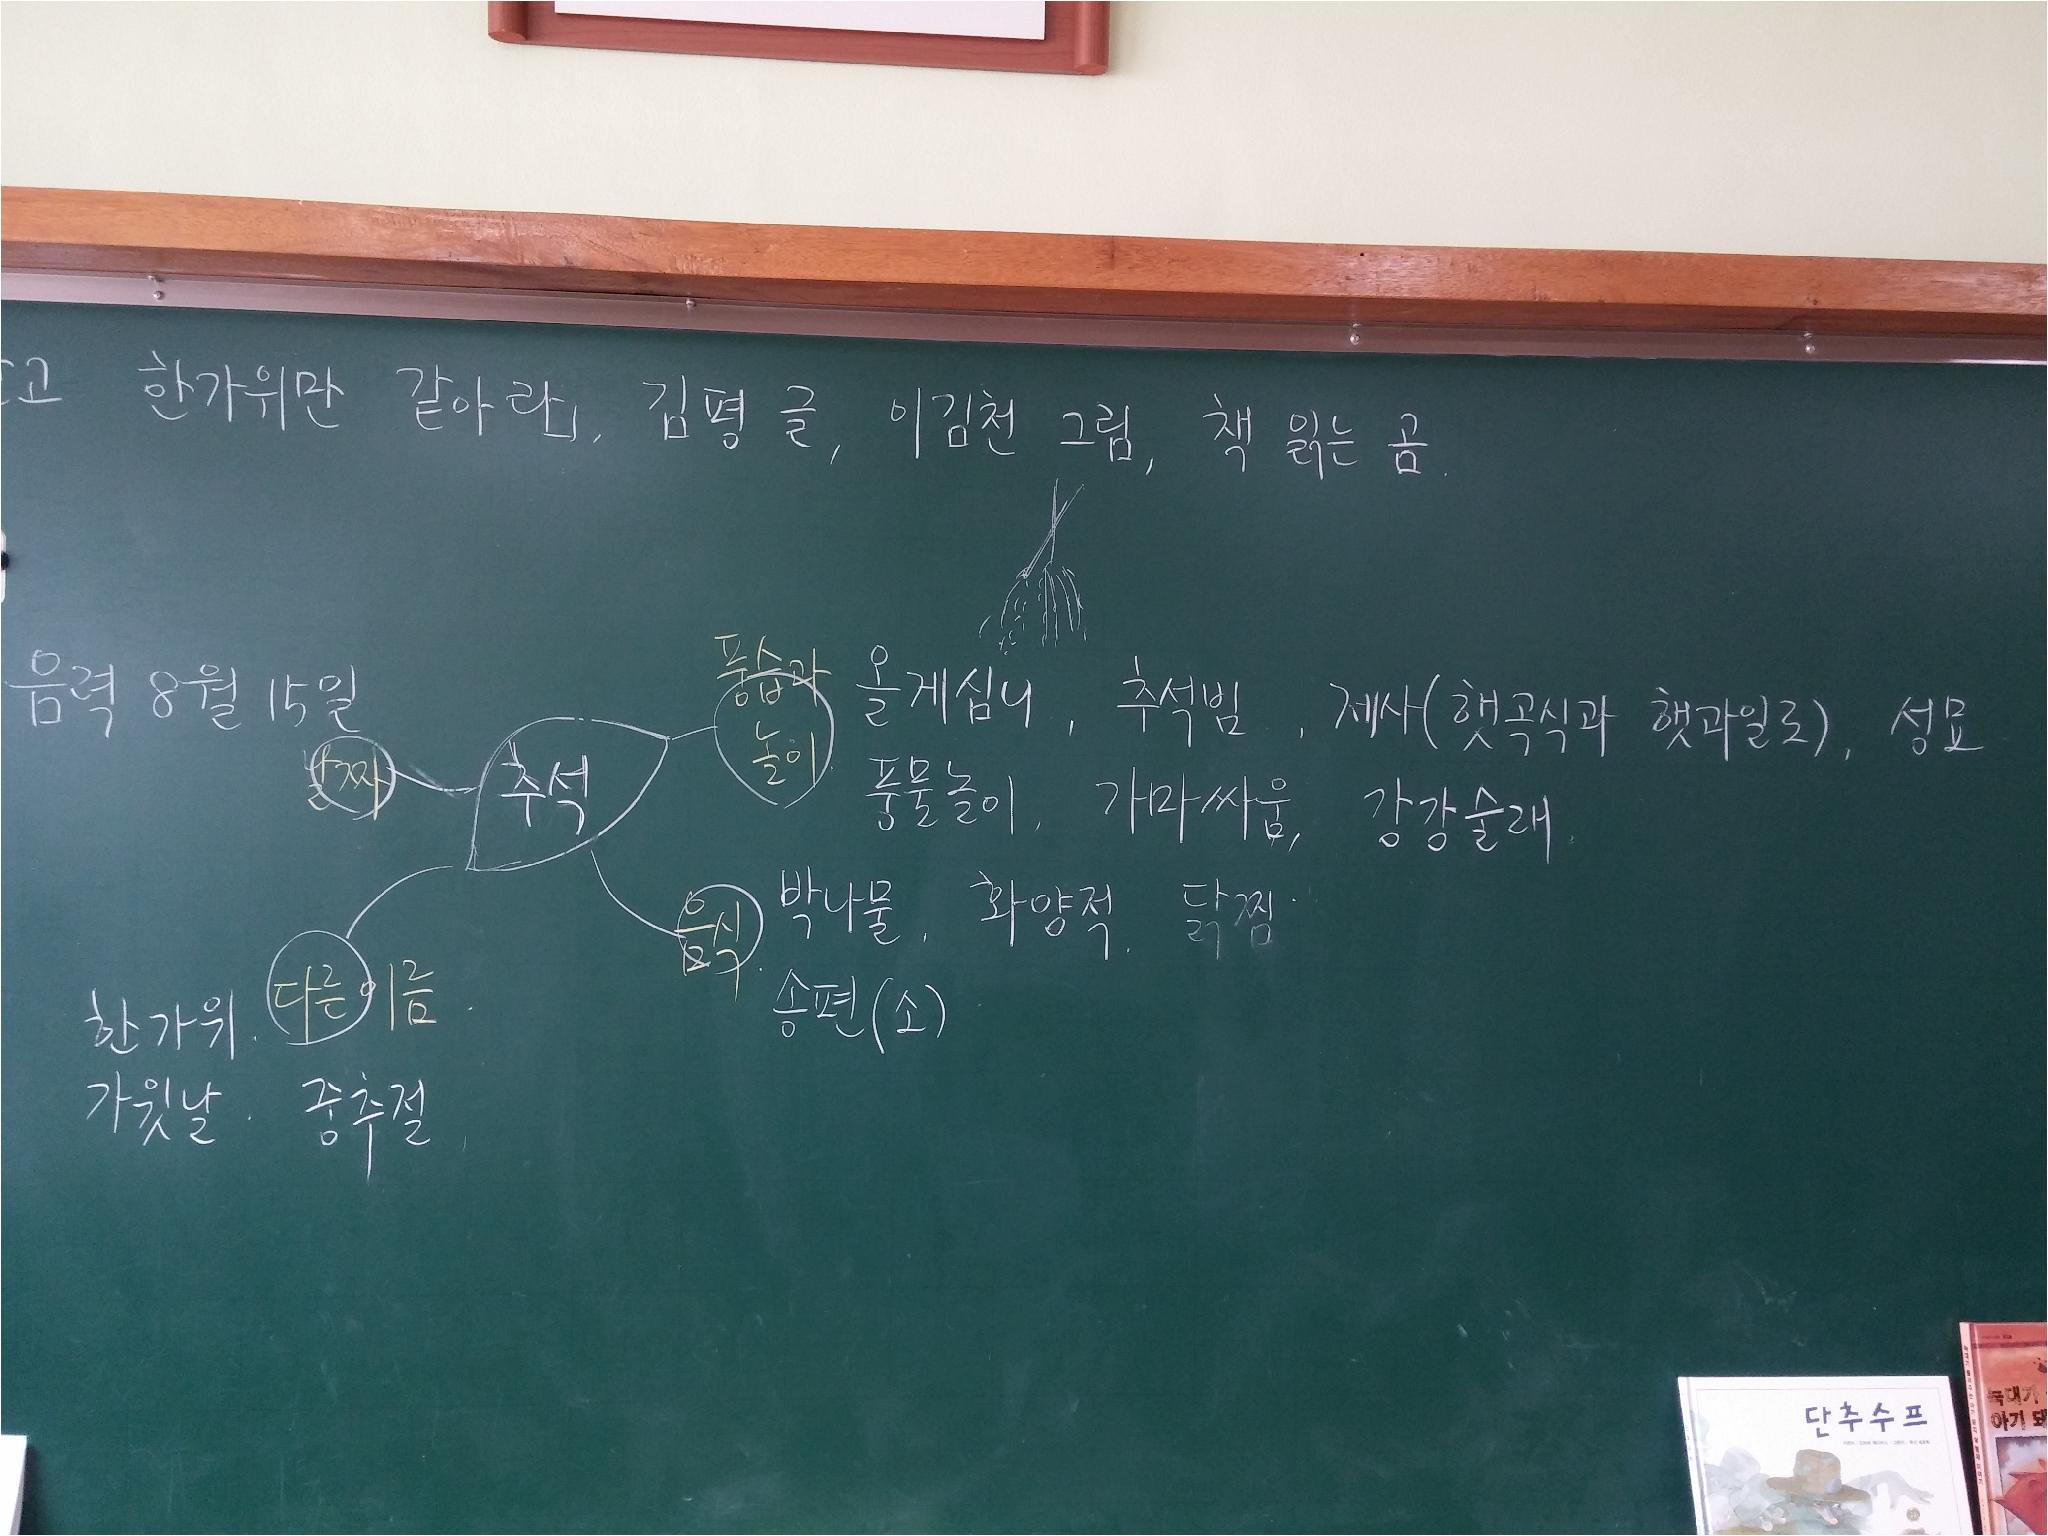 고 한가위만 같아라」, 김평 글, 이김천 그림, 책 읽는 곰.
음력 8월 15일
날짜
추석
풍습과
놀이
올게심니, 추석빔, 제사(햇곡식과 햇과일로), 성묘
풍물놀이, 가마싸움, 강강술래.
음식.
박나물, 화양적, 닭찜.
송편(소)
다른 이름.
한가위.
가윗날. 중추절,
단추수프
늑대가
아기 돼